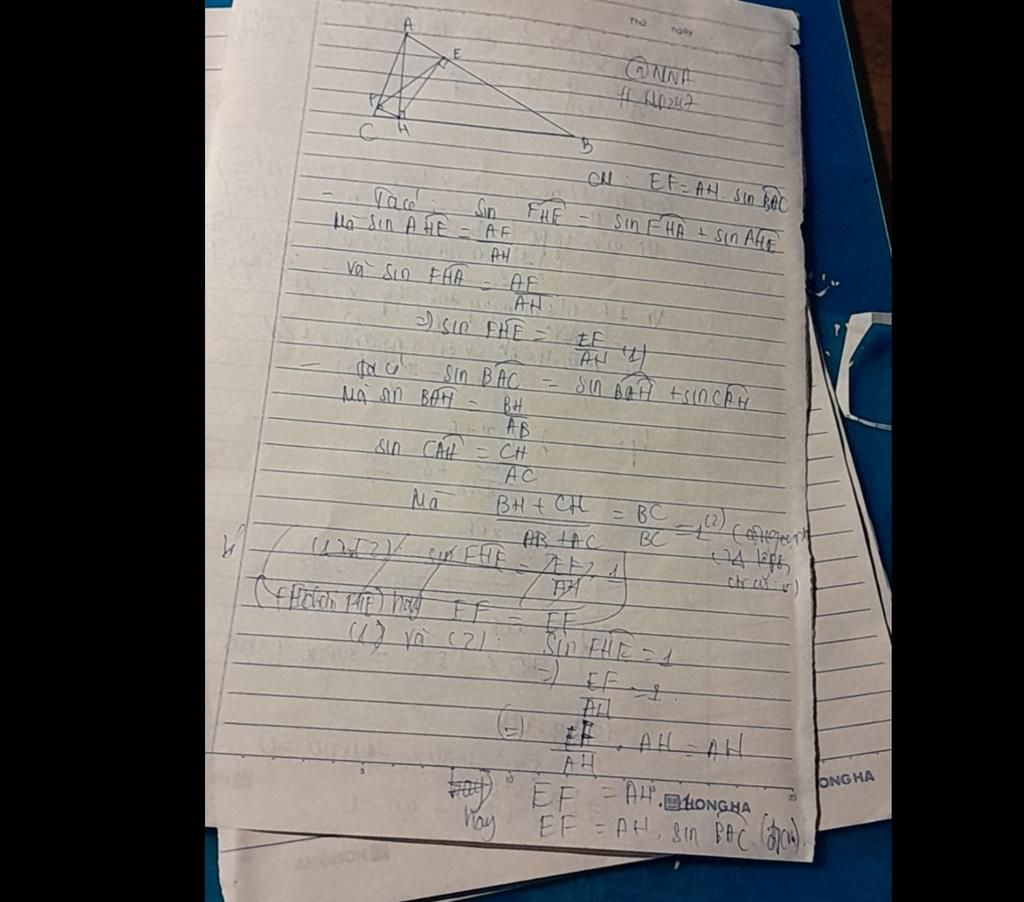 Thứ ngày
A
E
F
C H
B
@NNA
CM: EF = AH. sin BAC
- Ta có: sin FHE = sin FHA + sin AHE
Mà sin AHE = AF/AH
và sin FHA = AF/AH
=> sin FHE = EF/AH (1)
- Ta có: sin BAC = sin BAH + sin CAH
Mà sin BAH = BH/AB
sin CAH = CH/AC
Mà (BH + CH)/(AB + AC) = BC/BC = 1 (2)
(1) và (2): sin FHE = EF/AH
hay EF = EF
(1) và (2): sin FHE = 1
=> EF/AH = 1
(=) EF/AH . AH = AH
hay) EF = AH.1
HONGHA
hay EF = AH. sin BAC (đpcm).
ONG HA
HONGHA